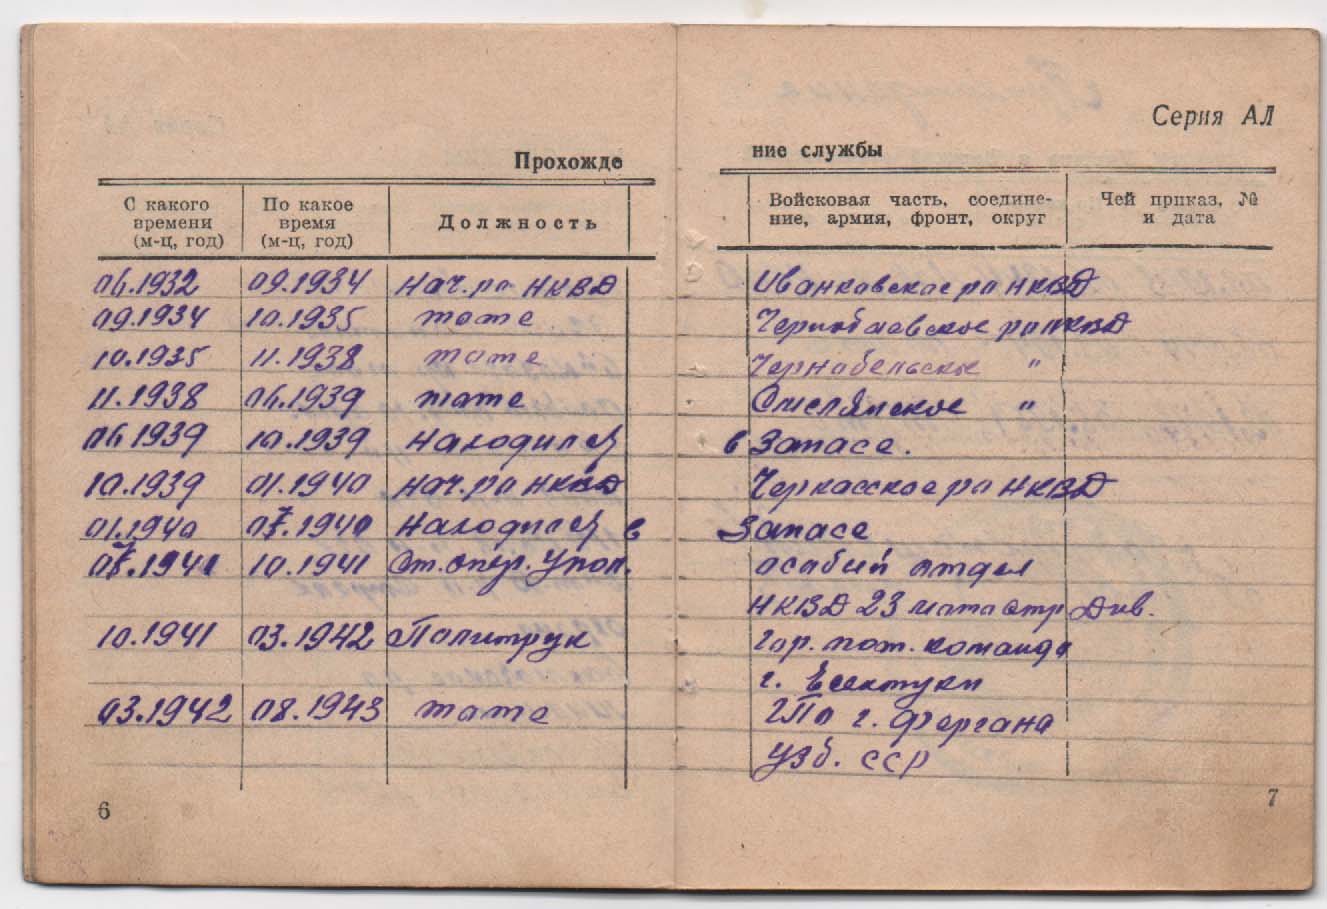 Серия АЛ
Прохожде ние службы
С какого времени (м-ц, год) По какое время (м-ц, год) Должность Войсковая часть, соедине-ние, армия, фронт, округ Чей приказ, № и дата
06.1932 09.1934 Нач. ро НКВД Иванковское ро НКВД
09.1934 10.1935 тоже ро НКВД
10.1935 11.1938 тоже Чернобельское "
11.1938 06.1939 тоже Смелянское "
06.1939 10.1939 Находился в Запасе.
10.1939 01.1940 Нач. ро НКВД Черкасское ро НКВД
01.1940 1940 Находился в Запасе
1941 10.1941 Ст. опер. Упол. особый отдел
НКВД 23 мотостр. Див.
10.1941 03.1942 Политрук Гор. пож. команда
г. Есентуки
03.1942 08.1943 тоже г. Фергана
Узб. ССР
6
7